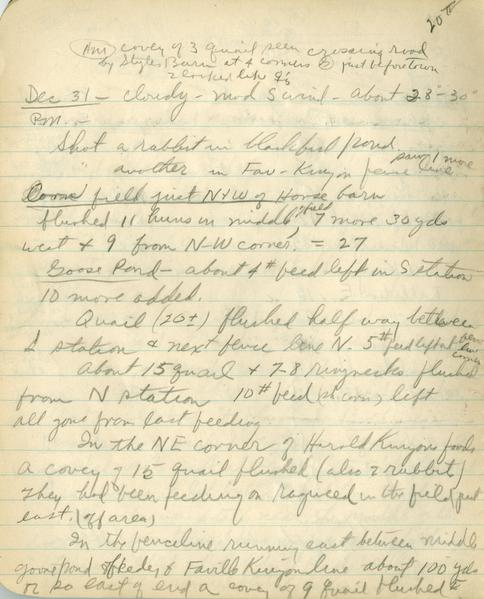 20
AM covey of 3 quail seen crossing road
by Styles Barn at 4 corners just before town
2 looked like
Dec 31 - cloudy - mod S wind - about 28°-30°
PM. -
Shot a rabbit in blackfish pond.
" another in Fav-Kinyon fence line saw 1 more
field just N+W of Horse barn
flushed 11 huns in middle of field, 7 more 30 yds
west + 9 from N-W corner. = 27
Goose Pond - about 4# feed left in S station
10 more added.
Quail (20±) flushed half way between
station & next fence line N. 5# feed left at
corner
About 15 quail + 7-8 ringnecks flushed
from N station 10# feed corn left
all gone from last feeding
In the NE corner of Harold Kinyons
a covey of 15 quail flushed (also 2 rabbits)
They had been feeding on ragweed in the field just
east. (of area)
In the fenceline running east between middle
goosepond feeder & Faville Kinyon line about 100 yds
or so east of end a covey of 9 quail flushed